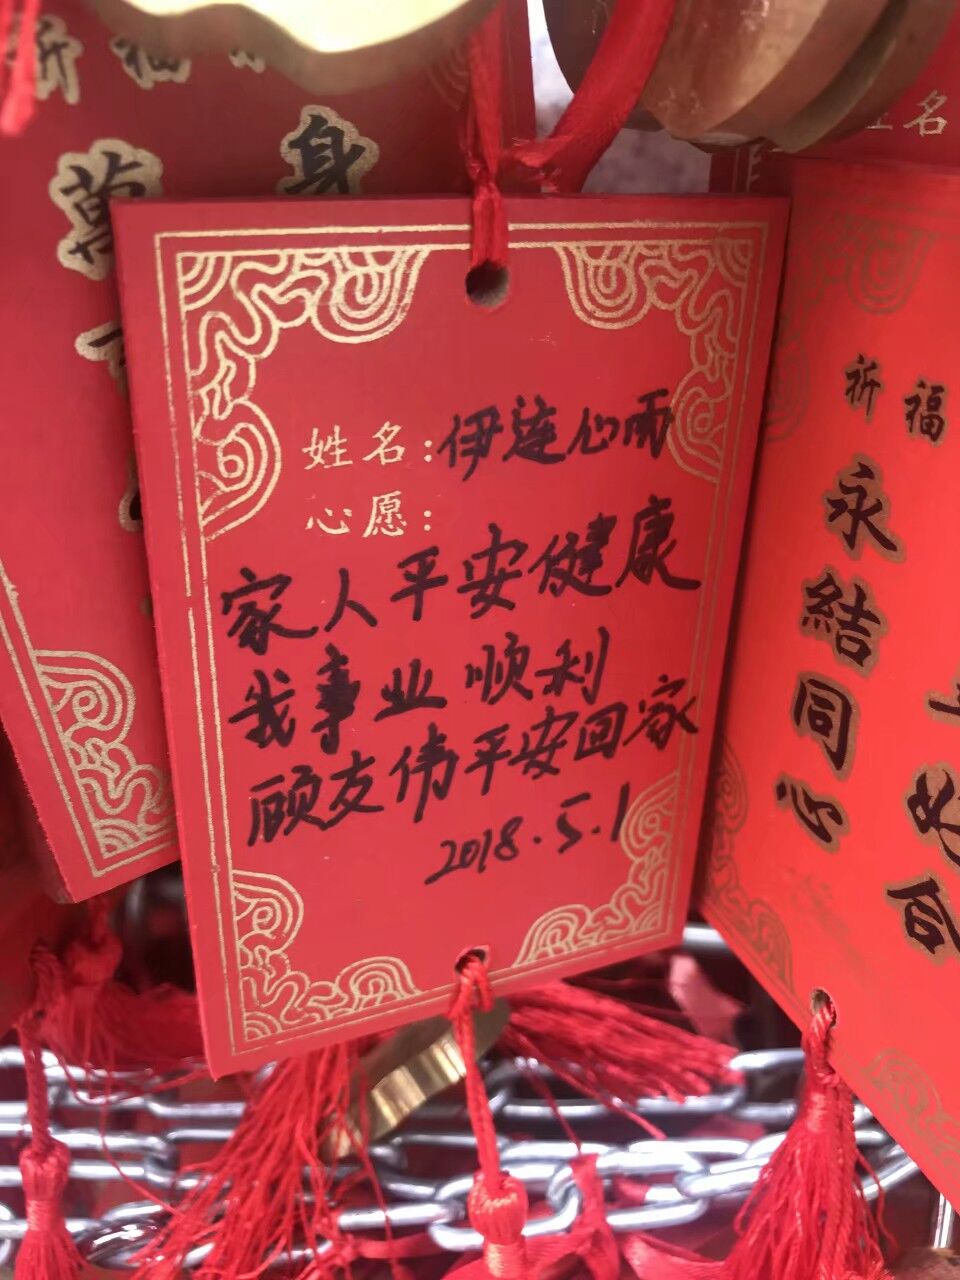 祈福
萬
身
姓名:伊涟心雨
心愿:
家人平安健康
我事业顺利
顾友伟平安回家
2018.5.1
姓名
祈福
永结同心
合